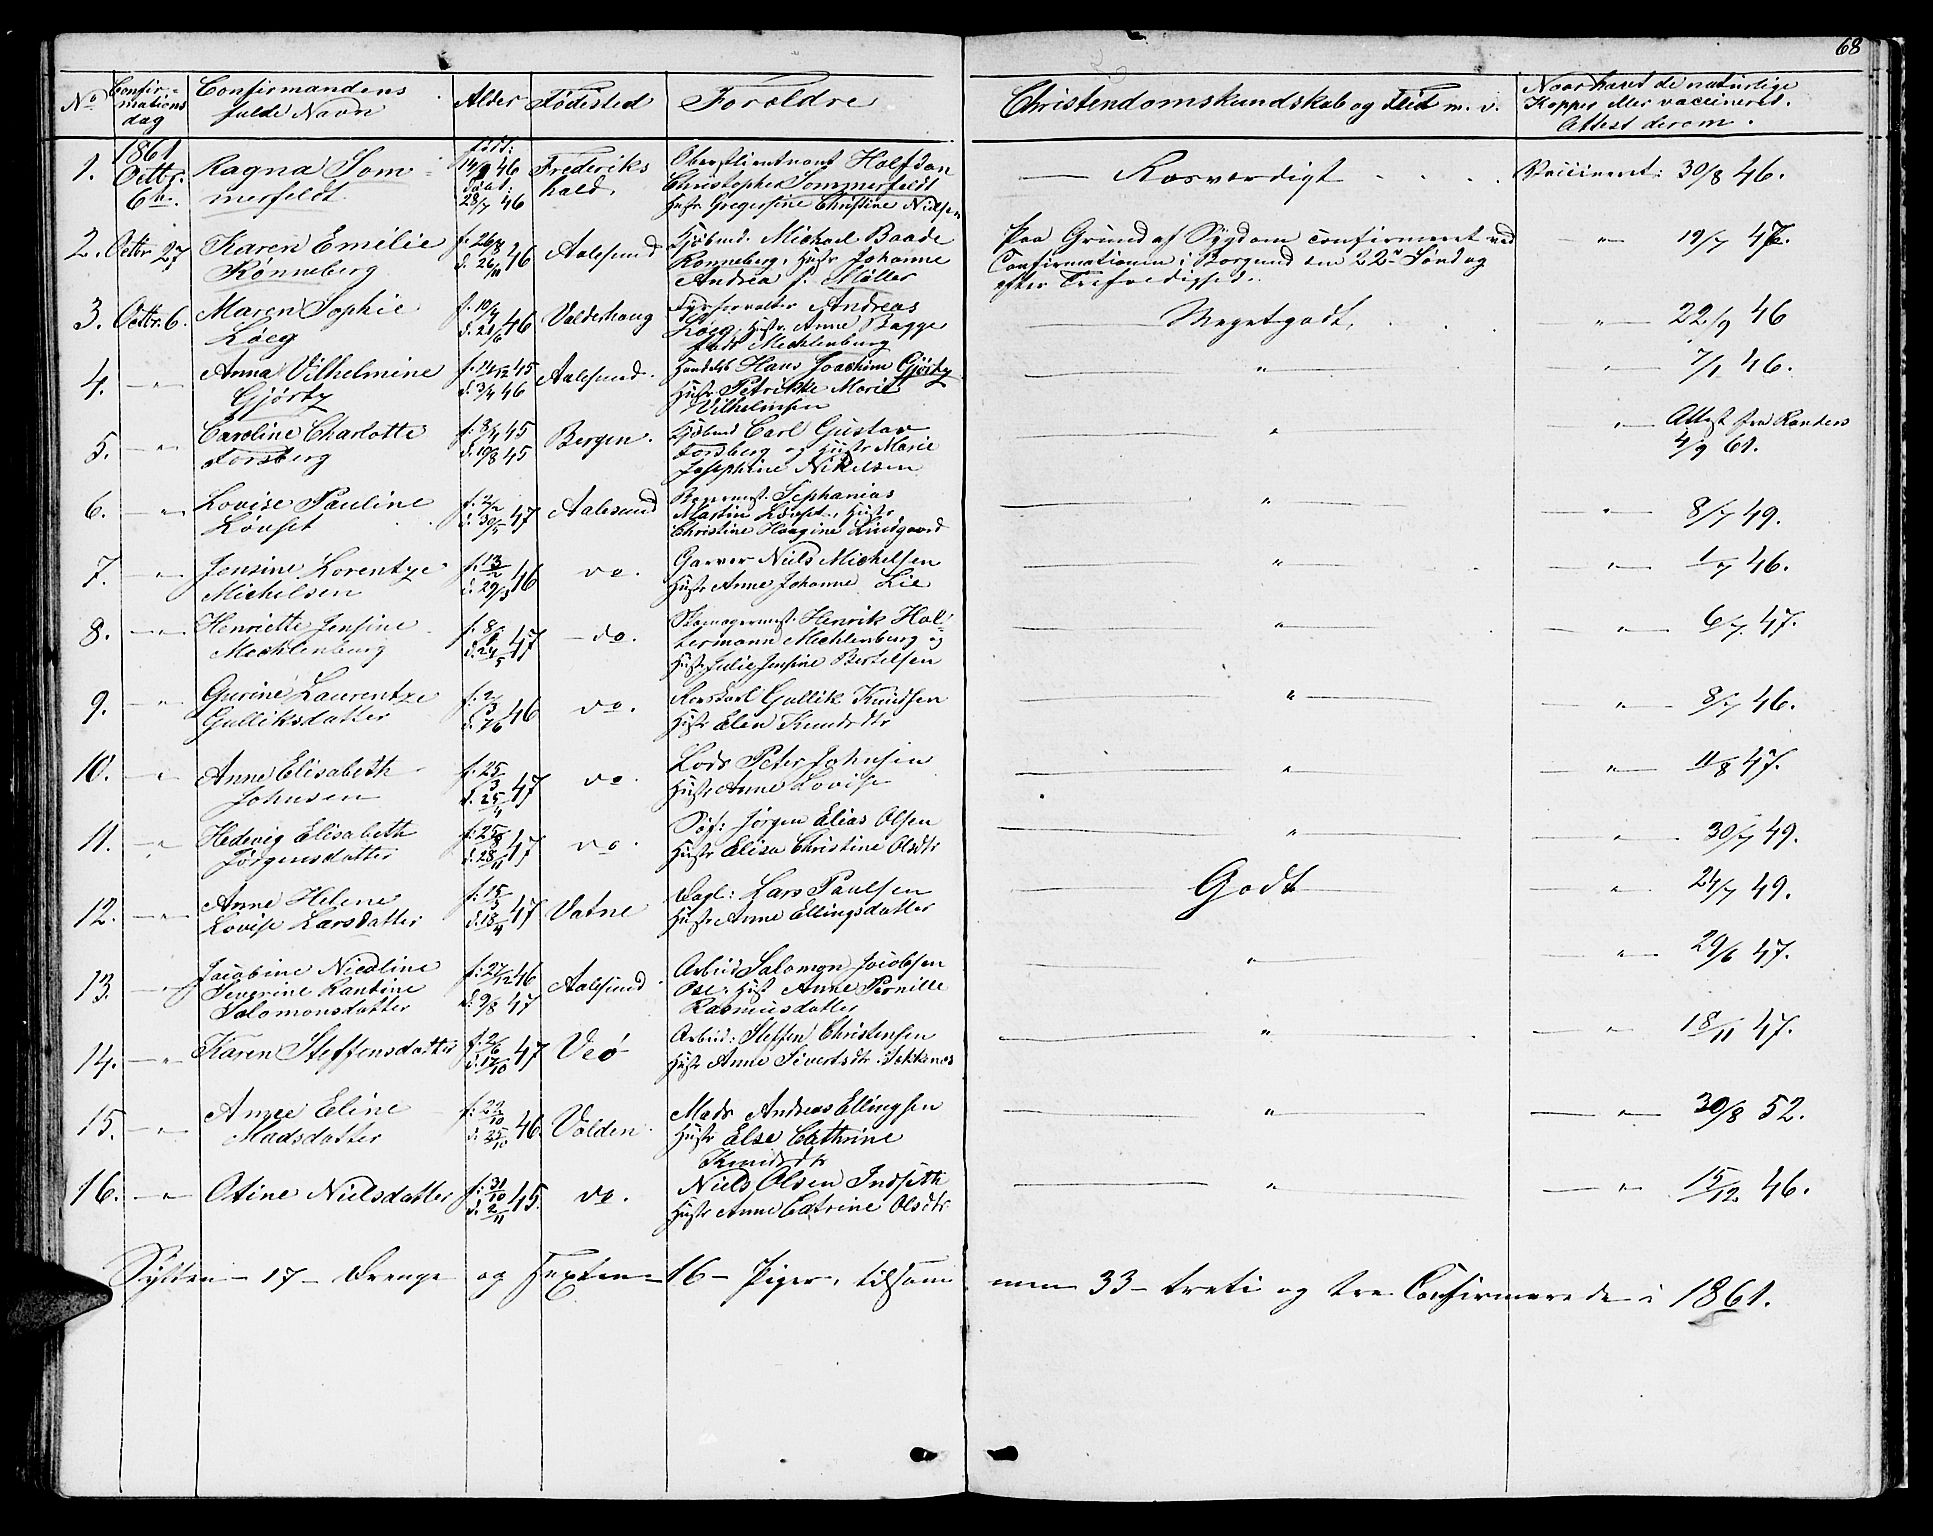 68
No Confirmations dag Confirmandens fulde Navn Alder Fødested Foreldre Christendomskundskab og Flid m. v. Naar havt de naturlige Kopper eller vaccineret. Attest derom.
1. 1861 Octbr. 6te. Ragna Sommerfeldt. født: 14/2 46 døbt: 28/7 46 Frederikshald. Oberstlieutnant Halfdan Christopher Sommerfeldt Hustr Gregersine Christine Nielsen Rosverdigt Vaccineret: 30/8 46.
2. Octbr 27 Karen Emilie Rønneberg f. 26/8 d. 26/10 46 Aalesund Kjøbmd. Michael Baade Rønneberg, Hustr Johanne Andrea f. Møller Paa Grund af Sygdom confirmeret ved Confirmationen i Borgund den 22de Søndag efter Trefoldighed. " 19/7 47.
3. Octbr. 6. Maren Sophie Køeg f. 10/4 d. 21/6 46 Valderhaug Fyrforvalter Andreas Køeg, Hustr. Anne Bagge født Mechlenburg Meget godt. " 22/9 46
4. " Anna Vilhelmine Gjørtz f. 24/12 45 d. 3/4 46 Aalesund. Handelsb Hans Joachim Gjørtz Hustr Petrikke Marie Vilhelmsen " " 7/1 46.
5. " Caroline Charlotte Forsberg f. 8/4 45 d. 10/8 45 Bergen. Kjøbmd Carl Gustav Forsberg og Hustr Marie Josephine Nikelsen " " Attest fra Randers 4/9 61.
6. " Lovise Pauline Løvset f. 2/2 d. 30/5 47 Aalesund Sephanias Martin Løvset, Hustr Christine Haagine Lindgaard " " 8/7 49.
7. " Jensine Lorentze Michelsen f. 13/2 d. 29/3 46 do. Garver Niels Michelsen Hustr Anne Johanne Lie " " 1/7 46.
8. " Henriette Jensine Mechlenburg f. 8/1 d. 24/5 47 do. Skomagermest. Henrik Haltermann Mechlenburg og Hustr Julie Jensine Bertelsen " " 6/7. 47.
9. " Gurine Laurentze Gulliksdatter f. 2/3 d. 7/6 46 do. Gullik Knudsen Hustr Elen Knudsdtr " " 8/7 46.
10. " Anne Elisabeth Johnsen f. 25/3 d. 25/4 47 do Lods Peter Johnsen Hustr Anne Lovise " " 11/8 47.
11. " Hedevig Elisabeth Jørgensdatter f. 25/8 d. 28/11 47 do. Søf: Jørgen Elias Olsen Hustr Elisa Christine Olsdtr " " 30/7 49.
12. " Anne Helene Lovise Larsdatter f. 15/3 d. 18/4 47 Vatne Dagl: Lars Paulsen Hustr Anne Ellingsdatter Godt " 24/7 49.
13. " Jacobine Nicoline Severine Rantine Salomonsdatter f: 27/12 46 d. 9/8 47 Aalesund. Arbeid Salomon Jacobsen Ose. Hust Anne Pernille Rasmusdatter " " 29/6 47.
14. " Karen Steffensdatter f. 2/6 d. 17/10 47 Veø Arbeid: Steffen Christensen Hustr Anne Sivertsdtr " " 18/11 47.
15. " Anne Eline Madsdatter f. 22/10 d. 25/10 46. Volden. Mads Andreas Ellingsen Hustr Else Cathrine Knudsdtr " " 30/8 52.
16. " Otine Nielsdatter f. 31/10 d. 2/11 45. do. Niels Olsen Indseth Hustr Anne Catrine Olsdtr " " 15/12. 46.
Sytten – 17 – Drenge og Sexten – 16 – Piger, tilsammen 33 – treti og tre Confirmerede i 1861.